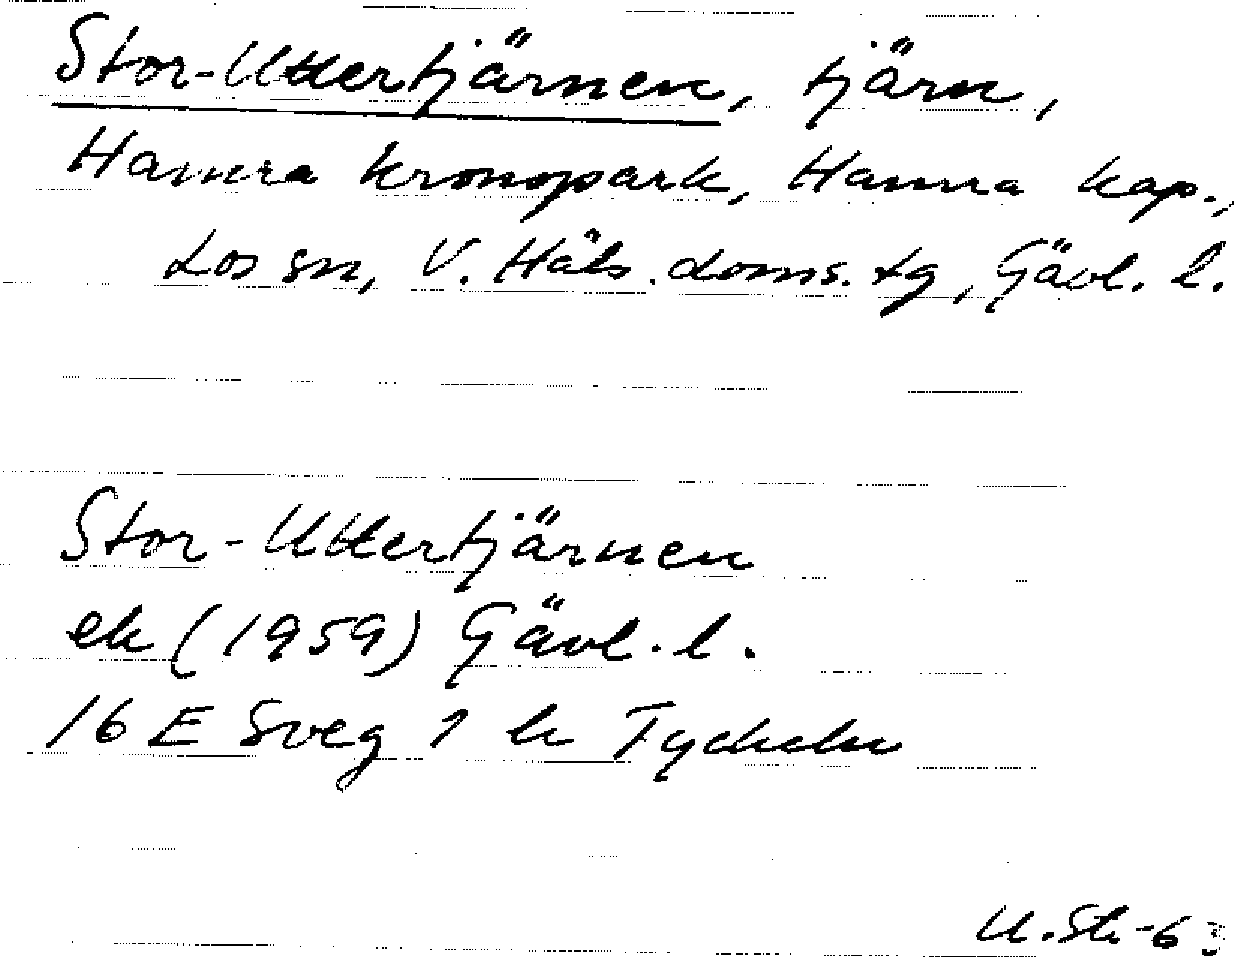 Stor-Uttertjärnen, tjärn,
Hamra kronopark, Hamra kap.,
Los sn, V. Häls. doms. tg, Gävl. l.
Stor-Uttertjärnen
ek (1959) Gävl. l.
16 E Sveg 1 h
U.Sth-63